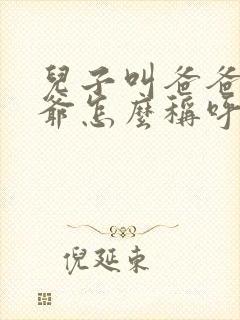 兒子叫爸爸
爺怎麼稱呼
倪延東